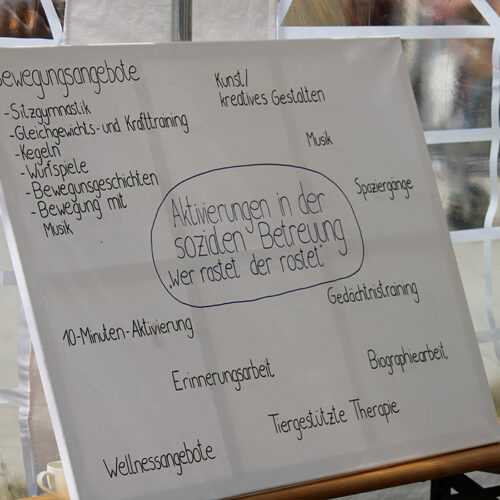 Bewegungsangebote
-Sitzgymnastik
-Gleichgewichts- und Krafttraining
-Kegeln
-Wurfspiele
-Bewegunsgeschichten
-Bewegung mit
Musik
Kunst/
kreatives Gestalten
Musik
Spaziergänge
Aktivierungen in der
soziden Betreuung
"wer rastet der rostet"
Gedächtnistraining
10-Minuten-Aktivierung
Biographiearbeit
Erinnerungsarbeit
Tiergestützte Therapie
Wellnessangebote